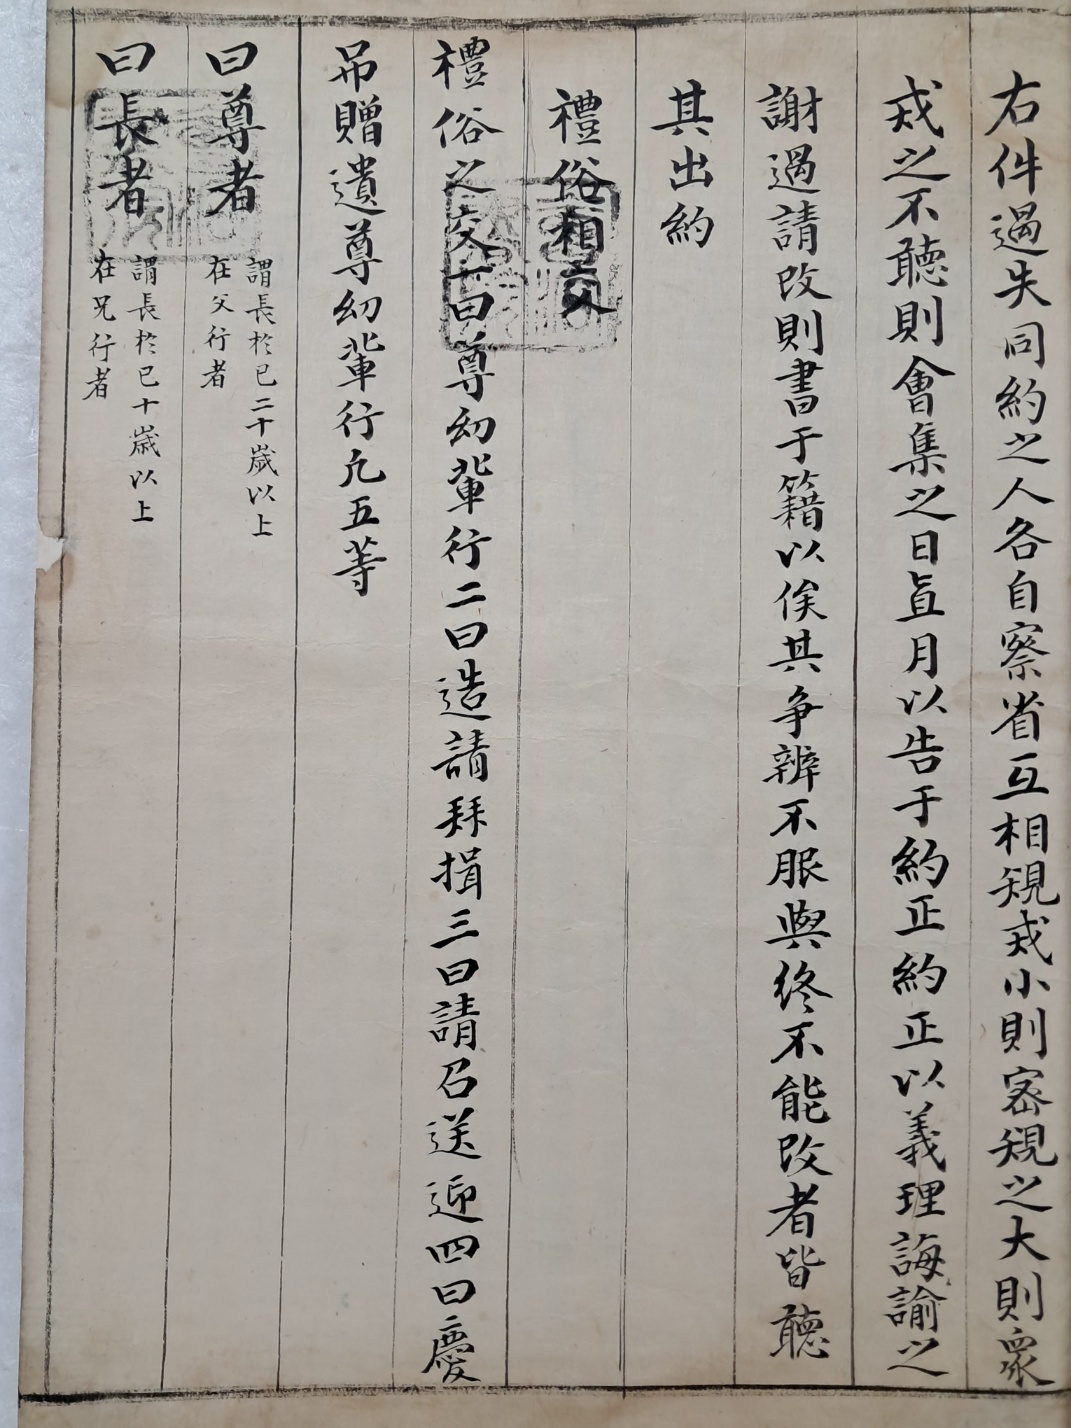 右件過失同約之人各自察省互相規戒小則密規之大則衆
戒之不聽則會集之日直月以告于約正約正以義理誨諭之
謝過請改則書于籍以俟其争辨不服與終不能改者皆聽
其出約
禮俗相交
禮俗之交一曰尊幼輩行二曰造請拜揖三曰請召送迎四曰慶
吊贈遺尊幼輩行凡五等
曰尊者
謂長於己二十歲以上
在父行者
曰長者
謂長於己十歲以上
在兄行者